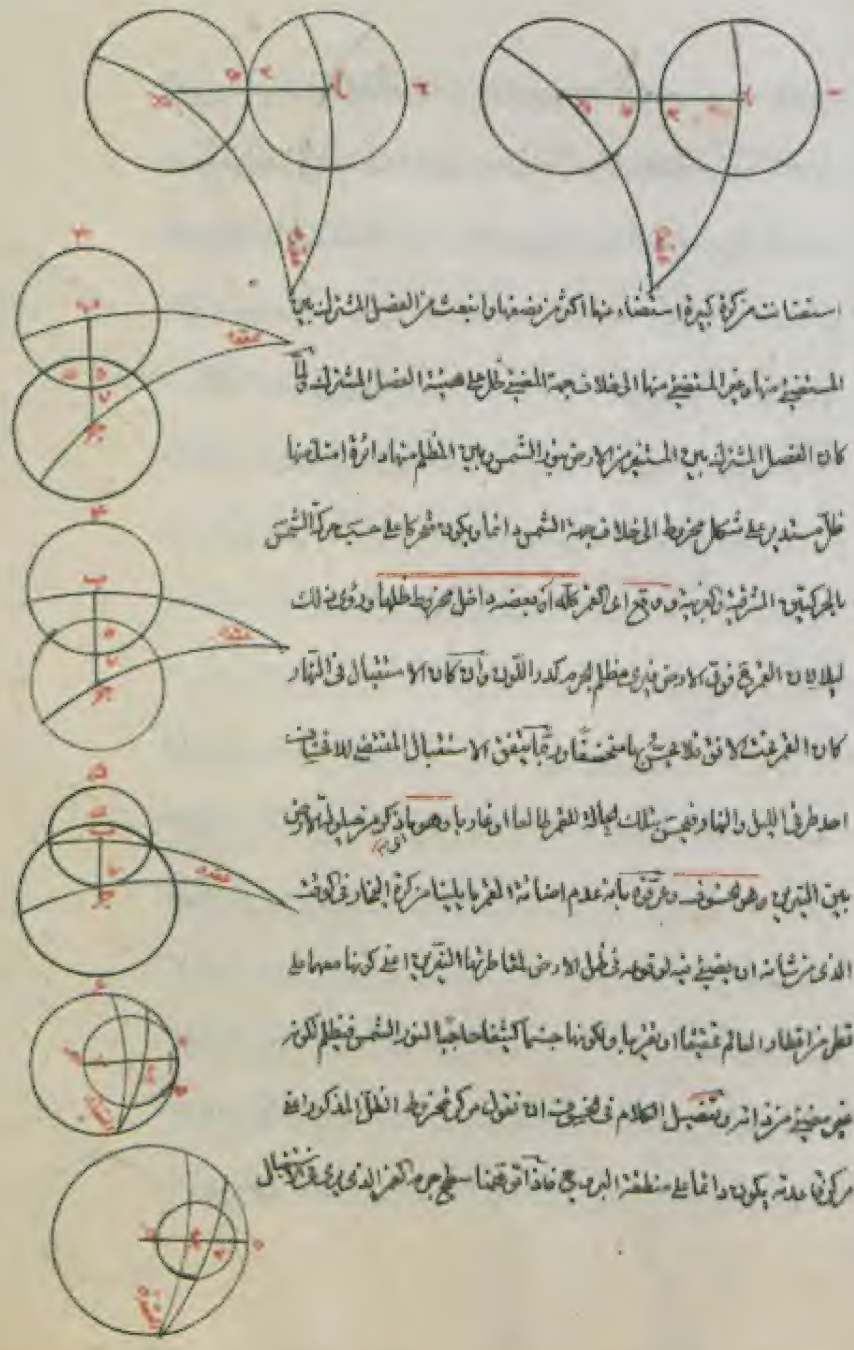 عقده
عقده
استضائت من كرة كبيرة استضاء منها اكثر من نصفها وانبعث من الفصل المشترك بين
المستضيئ منها وغير المستضيئ منها الى خلاف جهة المضيئ ظل على هيئة الفصل المشترك ولما
كان الفصل المشترك بين المستنير من الارض بنور الشمس وبين المظلم منها دائرة امتد منها
ظل مستدير على شكل مخروط الى خلاف جهة الشمس دائما ويكون متحركا على حسب حركة الشمس
بالحركتين الشرقية والغربية وان وقع القمر كله او بعضه داخل مخروط ظلها ورؤى ذلك
ليلا لان القمر فوق الارض فيرى مظلم الجرم كدر اللون وان كان الاستقبال فى النهار
كان القمر تحت الافق فلا يحس بها منخسفا وربما يتفق الاستقبال المقتضى للانخساف
احد طرفى الليل والنهار فيحس بتلك الحالة للقمر طالعا او غاربا وهو ما ذكر من حيلولة الارض
بين النيرين وهو الخسوف وعرفوه بانه عدم اضائة القمر ما يلينا من كرة البخار فى الوقت
الذى من شأنه ان يضيئ فيه لوقوعه فى ظل الارض لمقاطرتها النيرين اعنى كونها معهما على
قطر من اقطار العالم تحقيقا او تقريبا ولكونها جسما كثيفا حاجبا لنور الشمس فيظلم لكونه
غير مضيئ من ذاته وتفصيل الكلام فى الخسوف ان نقول مركز مخروط الظل المذكور اعنى
مركز قاعدته يكون دائما على منطقة البروج فاذا توهمنا سطح جرم القمر الذى يرى فى الاستقبال
عقده
عقده
عقده
العقدة
العقدة